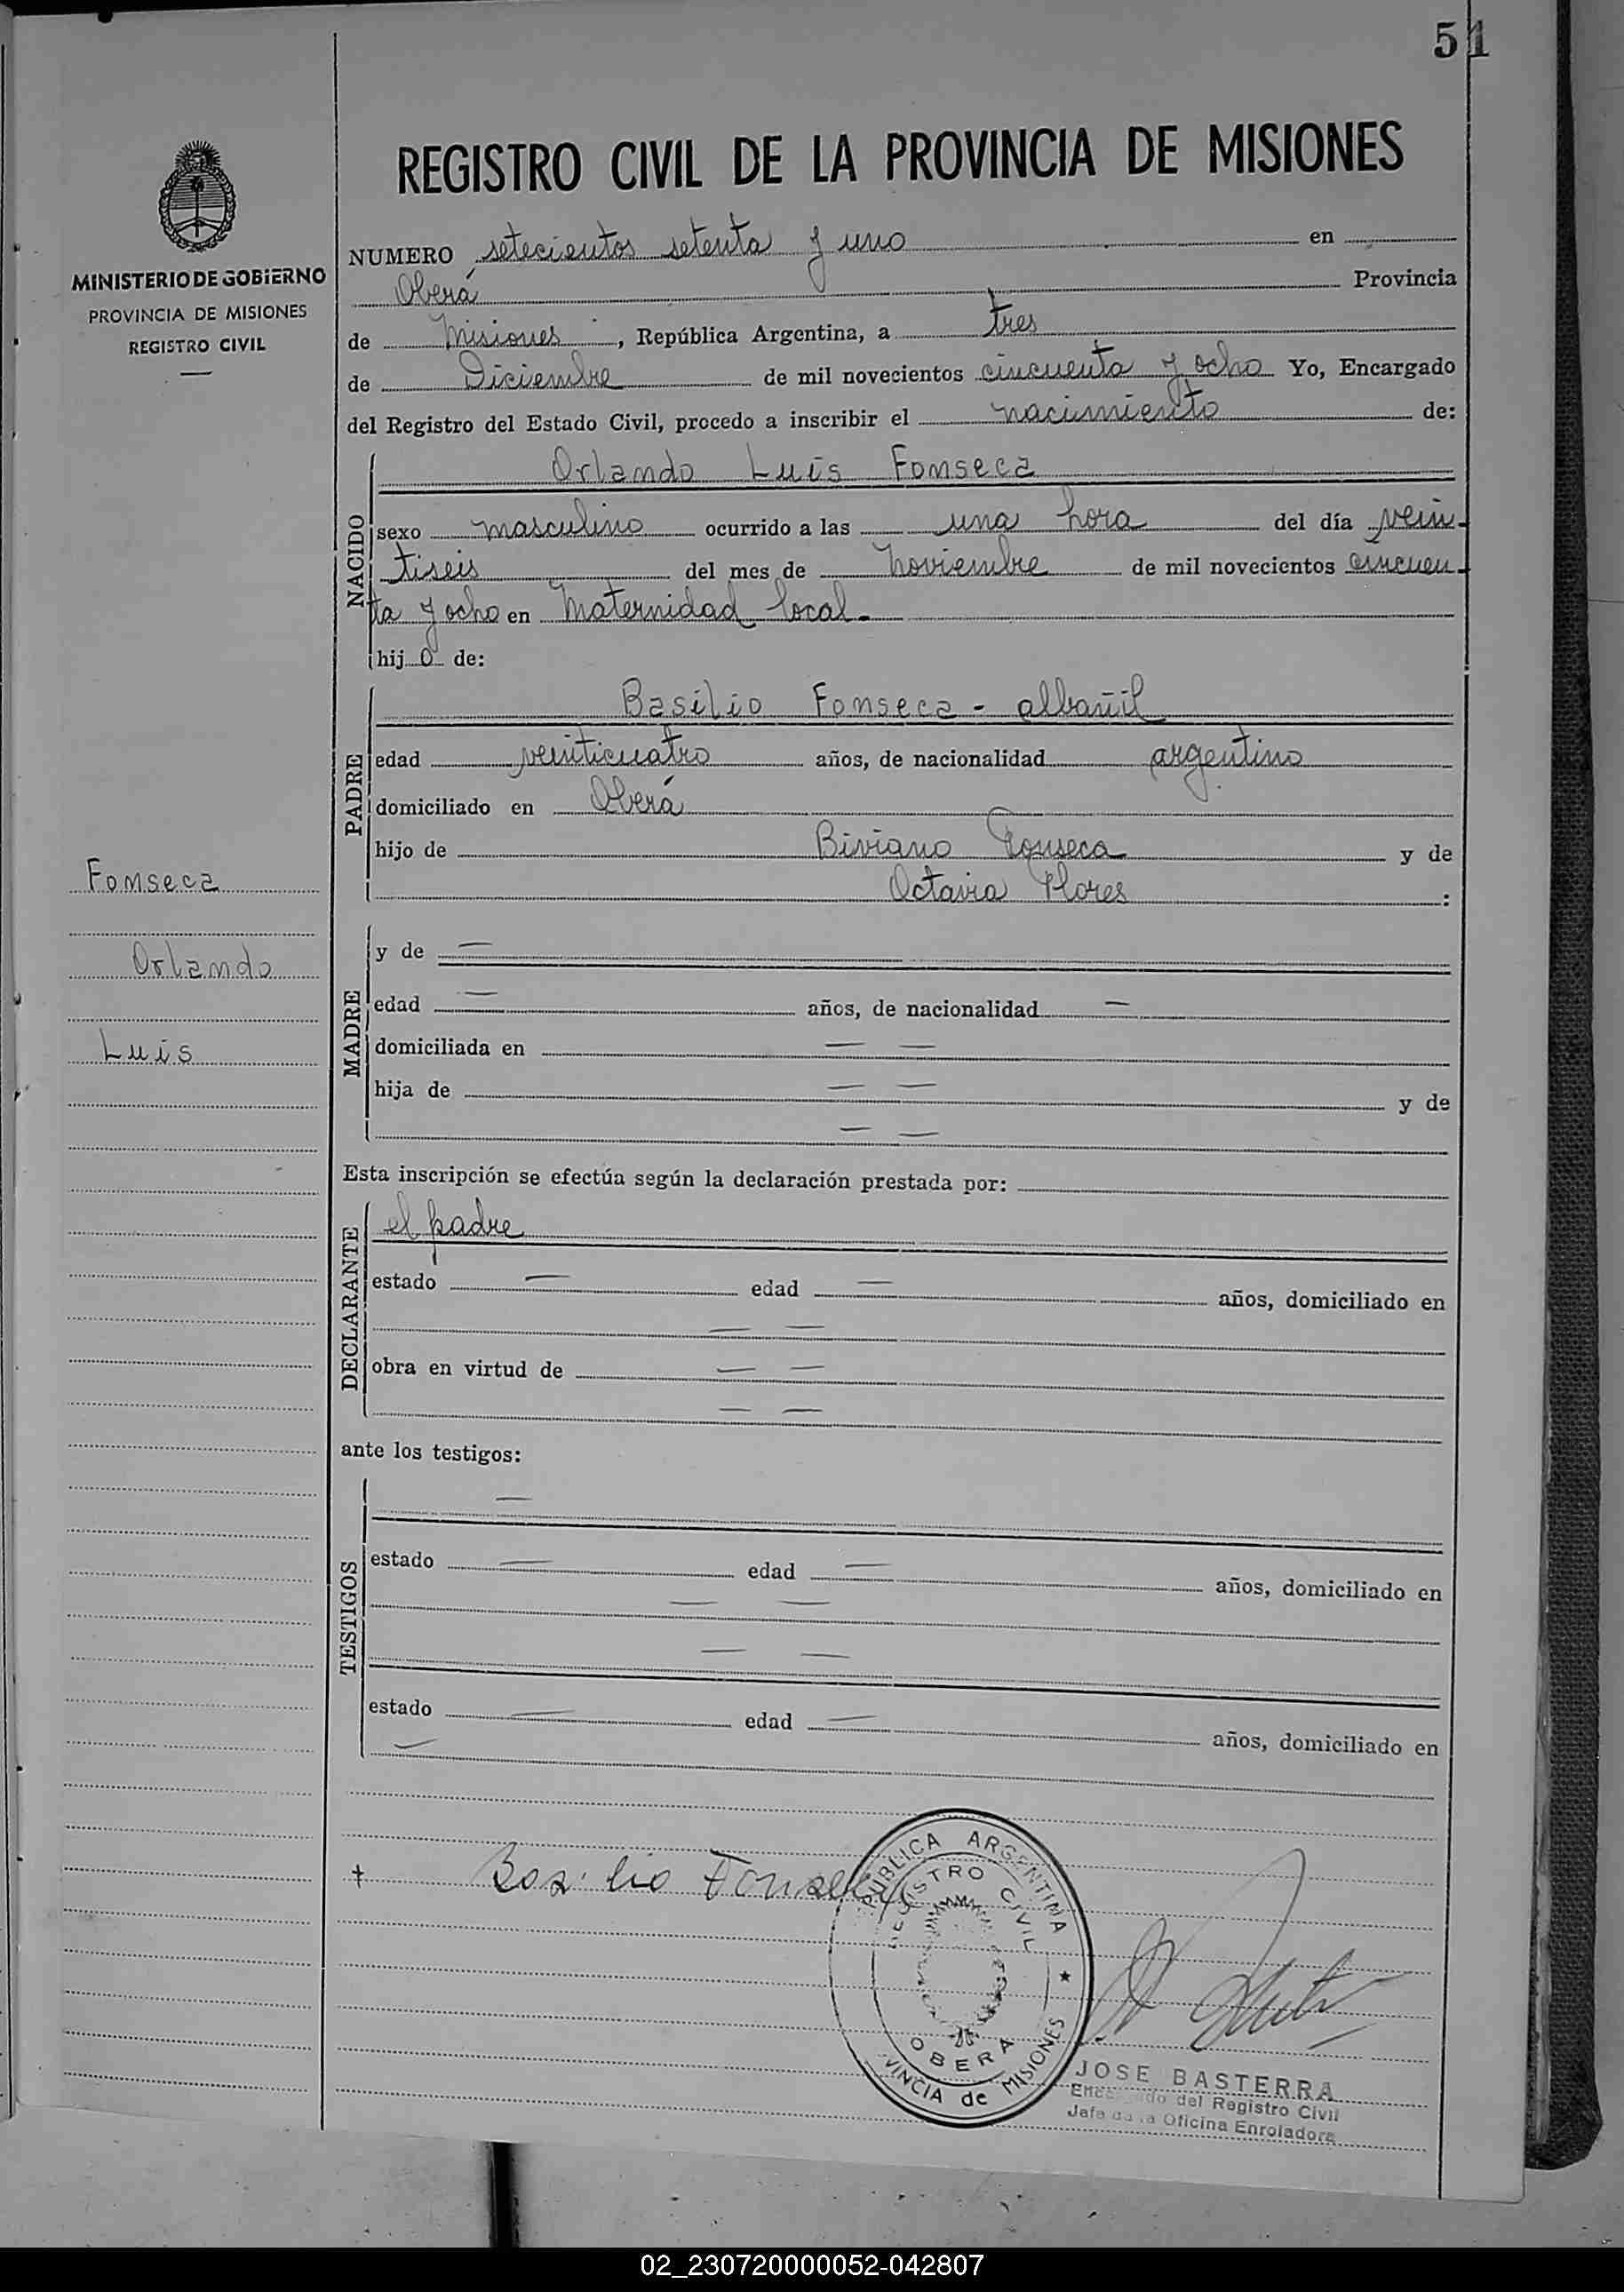 51
REGISTRO CIVIL DE LA PROVINCIA DE MISIONES
MINISTERIO DE GOBIERNO
PROVINCIA DE MISIONES
REGISTRO CIVIL
NUMERO setecientos setenta y uno en
Oberá Provincia
de Misiones, República Argentina, a tres
de Diciembre de mil novecientos cincuenta y ocho Yo, Encargado
del Registro del Estado Civil, procedo a inscribir el nacimiento de:
NACIDO
Orlando Luis Fonseca
sexo masculino ocurrido a las una hora del día vein-
tiseis del mes de Noviembre de mil novecientos cincuen-
ta y ocho en Maternidad local.-
hijo de:
PADRE
Basilio Fonseca - albañil
edad veinticuatro años, de nacionalidad argentino
domiciliado en Oberá
hijo de Biviano Fonseca y de
Octavia Flores :
Fonseca
Orlando
Luis
MADRE
y de —
edad — años, de nacionalidad —
domiciliada en — —
hija de — — y de
— —
Esta inscripción se efectúa según la declaración prestada por:
DECLARANTE
el padre
estado — edad — años, domiciliado en
— —
obra en virtud de — —
— —
ante los testigos:
TESTIGOS
—
estado — edad — años, domiciliado en
— —
— —
estado — edad — años, domiciliado en
—
Basilio Fonseca
REPUBLICA ARGENTINA
REGISTRO CIVIL
OBERA
PROVINCIA de MISIONES
JOSE BASTERRA
Encargado del Registro Civil
Jefe de la Oficina Enroladora
02_230720000052-042807